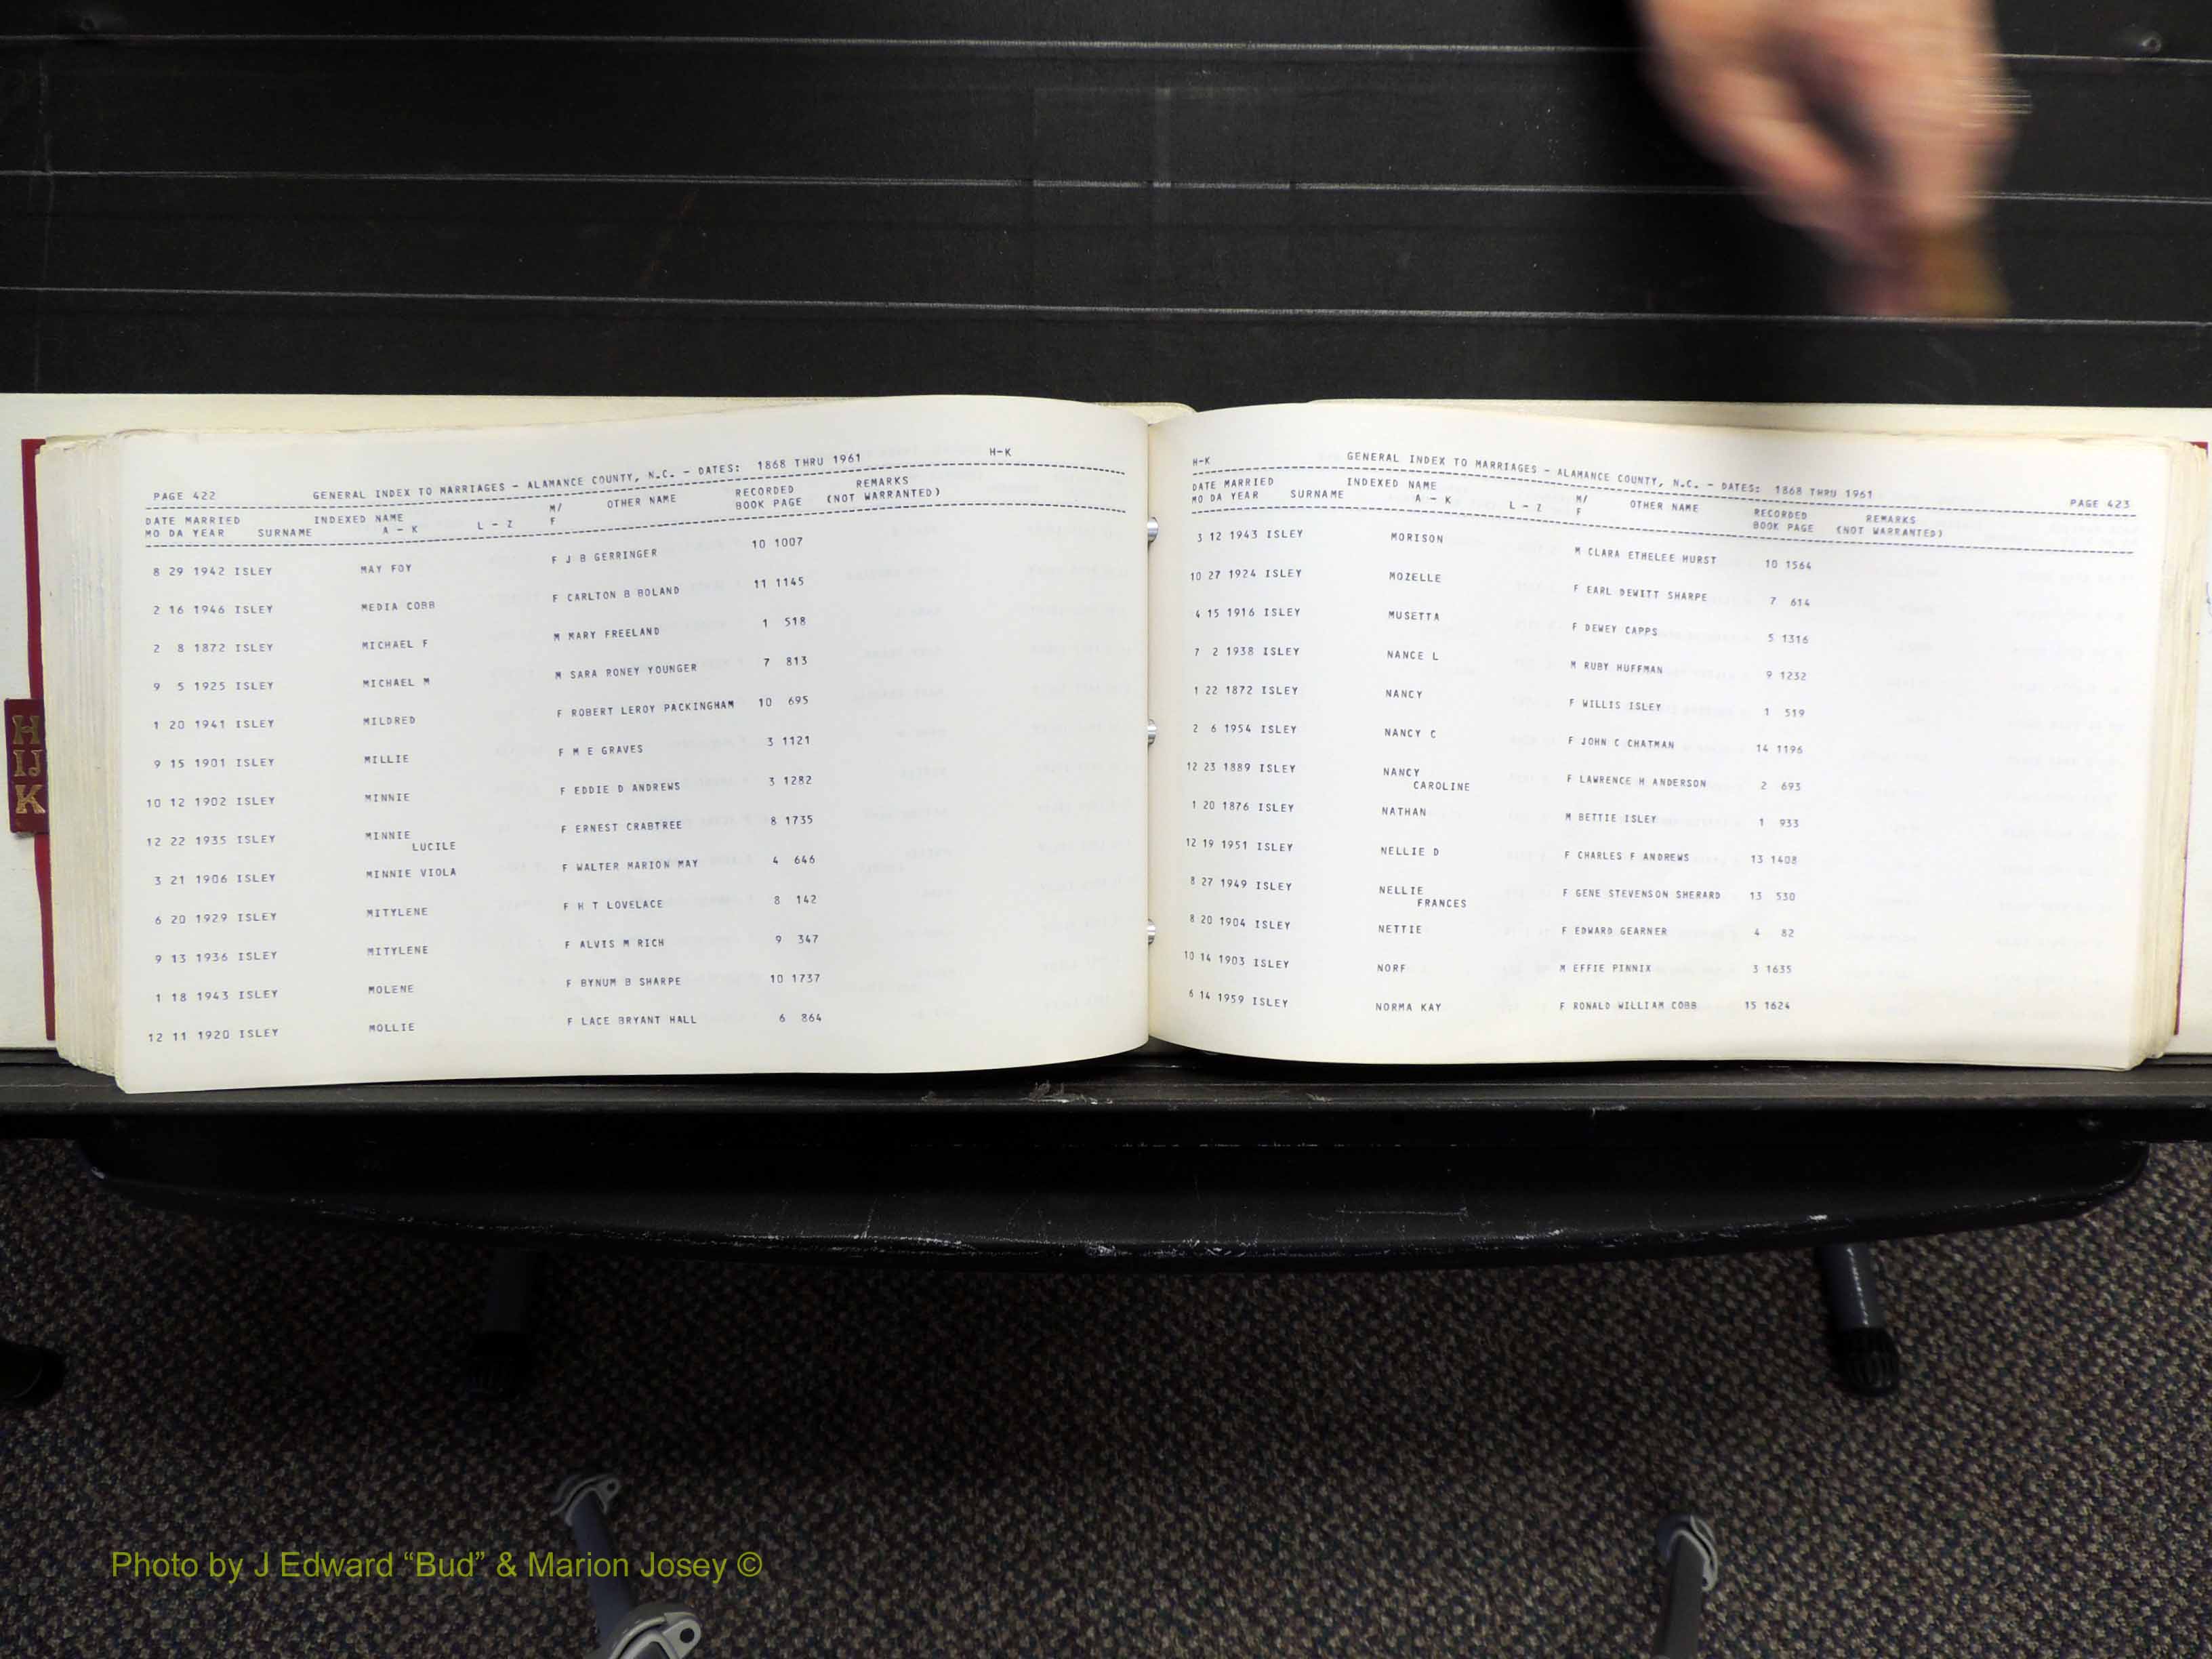 H
IJ
K
PAGE 422 GENERAL INDEX TO MARRIAGES - ALAMANCE COUNTY, N.C. - DATES: 1868 THRU 1961 H-K
DATE MARRIED INDEXED NAME M/ OTHER NAME RECORDED REMARKS
MO DA YEAR SURNAME A - K L - Z F BOOK PAGE (NOT WARRANTED)
8 29 1942 ISLEY MAY FOY F J B GERRINGER 10 1007
2 16 1946 ISLEY MEDIA COBB F CARLTON B BOLAND 11 1145
2 8 1872 ISLEY MICHAEL F M MARY FREELAND 1 518
9 5 1925 ISLEY MICHAEL M M SARA RONEY YOUNGER 7 813
1 20 1941 ISLEY MILDRED F ROBERT LEROY PACKINGHAM 10 695
9 15 1901 ISLEY MILLIE F M E GRAVES 3 1121
10 12 1902 ISLEY MINNIE F EDDIE D ANDREWS 3 1282
12 22 1935 ISLEY MINNIE F ERNEST CRABTREE 8 1735
LUCILE
3 21 1906 ISLEY MINNIE VIOLA F WALTER MARION MAY 4 646
6 20 1929 ISLEY MITYLENE F H T LOVELACE 8 142
9 13 1936 ISLEY MITYLENE F ALVIS M RICH 9 347
1 18 1943 ISLEY MOLENE F BYNUM B SHARPE 10 1737
12 11 1920 ISLEY MOLLIE F LACE BRYANT HALL 6 864
H-K GENERAL INDEX TO MARRIAGES - ALAMANCE COUNTY, N.C. - DATES: 1868 THRU 1961 PAGE 423
DATE MARRIED INDEXED NAME M/ OTHER NAME RECORDED REMARKS
MO DA YEAR SURNAME A - K L - Z F BOOK PAGE (NOT WARRANTED)
3 12 1943 ISLEY MORISON M CLARA ETHELEE HURST 10 1564
10 27 1924 ISLEY MOZELLE F EARL DEWITT SHARPE 7 614
4 15 1916 ISLEY MUSETTA F DEWEY CAPPS 5 1316
7 2 1938 ISLEY NANCE L M RUBY HUFFMAN 9 1232
1 22 1872 ISLEY NANCY F WILLIS ISLEY 1 519
2 6 1954 ISLEY NANCY C F JOHN C CHATMAN 14 1196
12 23 1889 ISLEY NANCY F LAWRENCE H ANDERSON 2 693
CAROLINE
1 20 1876 ISLEY NATHAN M BETTIE ISLEY 1 933
12 19 1951 ISLEY NELLIE D F CHARLES F ANDREWS 13 1408
8 27 1949 ISLEY NELLIE F GENE STEVENSON SHERARD 13 530
FRANCES
8 20 1904 ISLEY NETTIE F EDWARD GEARNER 4 82
10 14 1903 ISLEY NORF M EFFIE PINNIX 3 1635
6 14 1959 ISLEY NORMA KAY F RONALD WILLIAM COBB 15 1624
Photo by J Edward “Bud” & Marion Josey ©